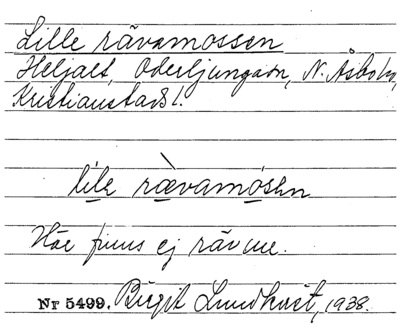 Lille rävamossen
Heljalt, Oderljungasn, N. Åsbohd,
Kristianstads l.
lilɛ rævamósɛn
Här finns ej räv nu.
Nr 5499. Birgit Lundkvist, 1938.